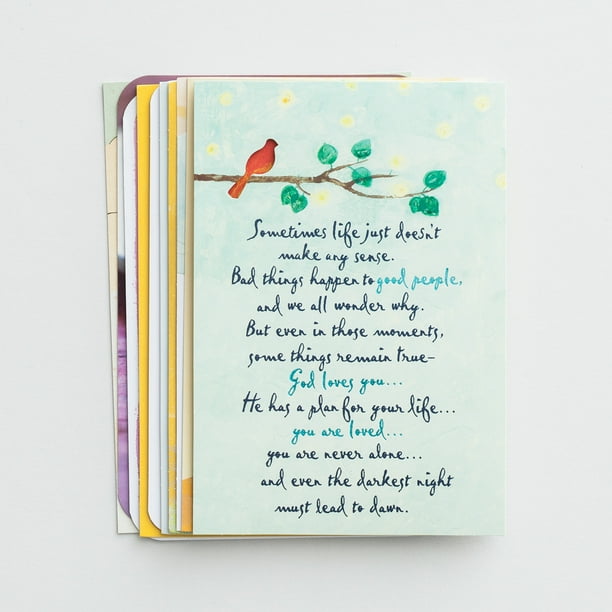 Sometimes life just doesn't
make any sense.
Bad things happen to good people,
and we all wonder why.
But even in those moments,
some things remain true—
God loves you...
He has a plan for your life...
you are loved...
you are never alone...
and even the darkest night
must lead to dawn.